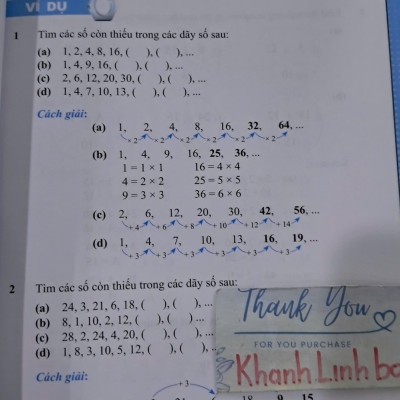 VÍ DỤ
1 Tìm các số còn thiếu trong các dãy số sau:
(a) 1, 2, 4, 8, 16, ( ), ( ), ...
(b) 1, 4, 9, 16, ( ), ( ), ...
(c) 2, 6, 12, 20, 30, ( ), ( ), ...
(d) 1, 4, 7, 10, 13, ( ), ( ), ...
Cách giải:
(a) 1, 2, 4, 8, 16, 32, 64, ...
× 2 × 2 × 2 × 2 × 2 × 2
(b) 1, 4, 9, 16, 25, 36, ...
1 = 1 × 1 16 = 4 × 4
4 = 2 × 2 25 = 5 × 5
9 = 3 × 3 36 = 6 × 6
(c) 2, 6, 12, 20, 30, 42, 56, ...
+ 4 + 6 + 8 + 10 + 12 + 14
(d) 1, 4, 7, 10, 13, 16, 19, ...
+ 3 + 3 + 3 + 3 + 3 + 3
2 Tìm các số còn thiếu trong các dãy số sau:
(a) 24, 3, 21, 6, 18, ( ), ( ), ...
(b) 8, 1, 10, 2, 12, ( ), ( ) ...
(c) 28, 2, 24, 4, 20, ( ), ( ), ...
(d) 1, 8, 3, 10, 5, 12, ( ), ( ), ..
Cách giải:
+ 3
18 9 15
Thank You
FOR YOU PURCHASE
Khanh Linh bo